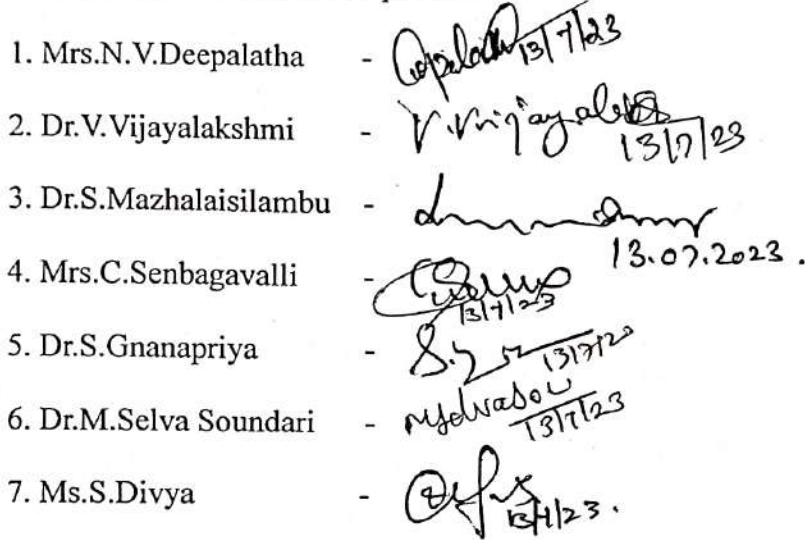 1. Mrs.N.V.Deepalatha - 13/7/23
2. Dr.V.Vijayalakshmi - V.Vijayalakshmi 13/7/23
3. Dr.S.Mazhalaisilambu - 13.07.2023.
4. Mrs.C.Senbagavalli - 13/7/23
5. Dr.S.Gnanapriya - 13/7/23
6. Dr.M.Selva Soundari - 13/7/23
7. Ms.S.Divya - 13/7/23.